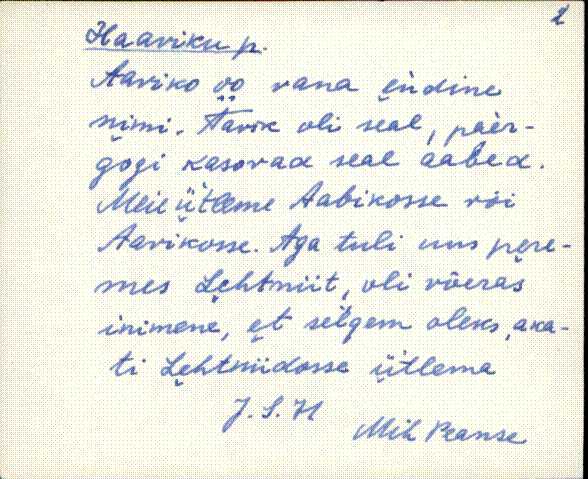 2
Haaviku p.
Aaviko oo vana endine
nimi. Aavik oli seal, päer-
gogi kasovad seal aabed.
Meie ütleme Aabikosse või
Aavikosse. Aga tuli uus pere-
mes Lehtniit, oli võeras
inimene, et selgem oleks, aka-
ti Lehtniidosse ütlema
J. S. H
Mih Peanse